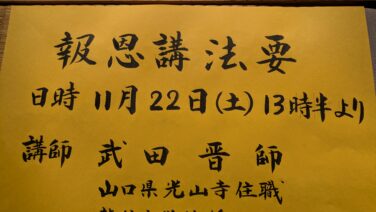 報恩講法要
日時 11月22日(土) 13時半より
講師 武田晋師
山口県光山寺住職